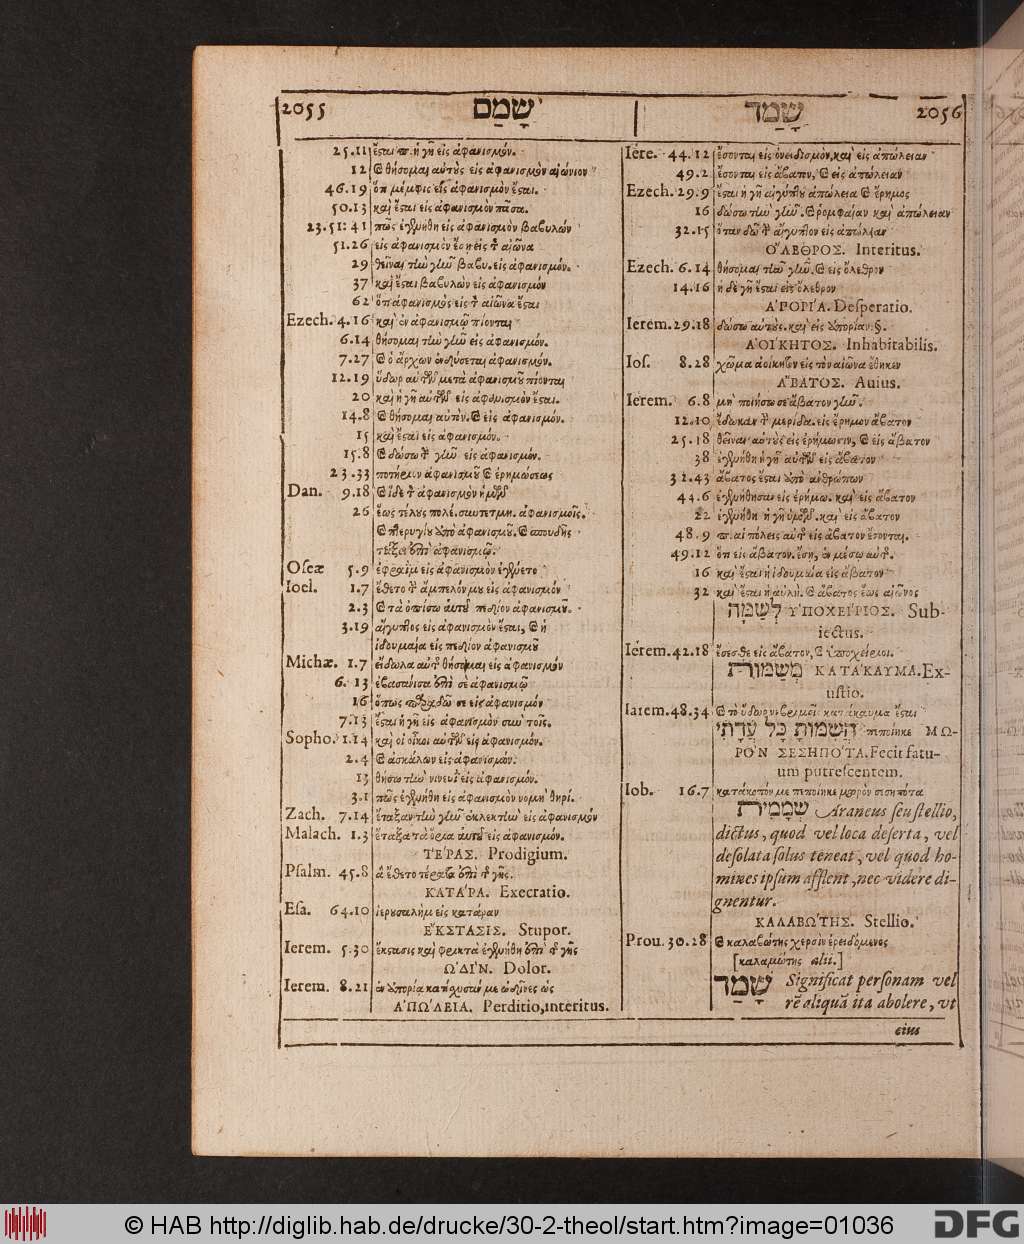 2055 שָׁמַם
25.11 ἔσται π. ἡ γῆ εἰς ἀφανισμόν.
12 & θήσομαι αὐτοὺς εἰς ἀφανισμὸν αἰώνιον
46.19 ὅτι μέμφις εἰς ἀφανισμὸν ἔσται.
50.13 καὶ ἔσται εἰς ἀφανισμὸν πᾶσα.
23.51: 41 πῶς ἐγενήθη εἰς ἀφανισμὸν βαβυλών
51.26 εἰς ἀφανισμὸν ἔσῃ εἰς τὸν αἰῶνα
29 θεῖναι τὴν γῆν βαβυ. εἰς ἀφανισμόν.
37 καὶ ἔσται βαβυλὼν εἰς ἀφανισμόν
62 ὅτι ἀφανισμὸς εἰς τὸν αἰῶνα ἔσται
Ezech. 4.16 καὶ ἐν ἀφανισμῷ πίονται
6.14 θήσομαι τὴν γῆν εἰς ἀφανισμόν.
7.27 & ὁ ἄρχων ἐνδύσεται ἀφανισμόν.
12.19 ὕδωρ αὐτῶν μετὰ ἀφανισμοῦ πίονται
20 καὶ ἡ γῆ αὐτῶν εἰς ἀφανισμὸν ἔσται.
14.8 & θήσομαι αὐτὸν. & εἰς ἀφανισμόν.
15 καὶ ἔσται εἰς ἀφανισμόν.
15.8 & δώσω τὴν γῆν εἰς ἀφανισμόν.
23.33 ποτήριον ἀφανισμοῦ & ἐρημώσεως
Dan. 9.18 & ἴδε τὸν ἀφανισμὸν ἡμῶν
26 ἕως τέλους πολέ. συντετμη. ἀφανισμοῖς.
& πτερυγίου ἀπὸ ἀφανισμοῦ. & σπουδῆς
τάξει ἐπὶ ἀφανισμῷ.
Oseæ 5.9 ἐφραὶμ εἰς ἀφανισμὸν ἐγένετο
Ioel. 1.7 ἔθετο τὴν ἄμπελόν μου εἰς ἀφανισμόν
2.3 & τὰ ὀπίσω αὐτοῦ πεδίον ἀφανισμοῦ.
3.19 αἴγυπτος εἰς ἀφανισμὸν ἔσται, & ἡ
ἰδουμαία εἰς πεδίον ἀφανισμοῦ
Michæ. 1.7 εἴδωλα αὐτῆς θήσομαι εἰς ἀφανισμόν
6. 13 ἐβασάνισα ἐπὶ σὲ ἀφανισμῷ
16 ὅπως παραδῶ σε εἰς ἀφανισμόν
7.13 ἔσται ἡ γῆ εἰς ἀφανισμὸν σὺν τοῖς.
Sopho. 1.14 καὶ οἱ οἶκοι αὐτῶν εἰς ἀφανισμόν.
2.4 & ἀσκάλων εἰς ἀφανισμόν.
13 θήσω τὴν νινευῒ εἰς ἀφανισμόν.
3.1 πῶς ἐγενήθη εἰς ἀφανισμὸν νομὴ θηρί.
Zach. 7.14 ἔταξαν τὴν γῆν ἐκλεκτὴν εἰς ἀφανισμόν
Malach. 1.3 ἔταξα τὰ ὅρια αὐτοῦ εἰς ἀφανισμόν.
ΤΕ΄ΡΑΣ. Prodigium.
Psalm. 45.8 ἃ ἔθετο τέρατα ἐπὶ τῆς γῆς.
ΚΑΤΑ΄ΡΑ. Execratio.
Esa. 64.10 ἱερουσαλὴμ εἰς κατάραν
ΕΚΣΤΑΣΙΣ. Stupor.
Ierem. 5.30 ἔκστασις καὶ φρικτὰ ἐγενήθη ἐπὶ τῆς γῆς
ΩΔΙΝ. Dolor.
Ierem. 8.21 ἐν ἀπορίᾳ κατίσχυσάν με ὠδῖνες ὡς
ΑΠΩ΄ΛΕΙΑ. Perditio, interitus.
שָׁמַד 2056
Iere. 44.12 ἔσονται εἰς ὀνειδισμὸν, καὶ εἰς ἀπώλειαν
49.2 ἔσονται εἰς ἄβατον, & εἰς ἀπώλειαν
Ezech. 29.9 ἔσται ἡ γῆ αἰγύπτου ἀπώλεια & ἔρημος
16 δώσω τὴν γῆν. & ῥομφαίαν καὶ ἀπώλειαν
32.15 ὅταν δῶ τὴν αἴγυπτον εἰς ἀπώλειαν
ΟΛΕΘΡΟΣ. Interitus.
Ezech. 6.14 θήσομαι τὴν γῆν. & εἰς ὄλεθρον
14.16 ἡ δὲ γῆ ἔσται εἰς ὄλεθρον
ΑΠΟΡΙ΄Α. Desperatio.
Ierem. 29.18 δώσω αὐτοὺς. καὶ εἰς ἀπορίαν. §.
ΑΟΙΚΗΤΟΣ. Inhabitabilis.
Ios. 8.28 χῶμα ἀοίκητον εἰς τὸν αἰῶνα ἔθηκεν
ΑΒΑΤΟΣ. Auius.
Ierem. 6.8 μὴ ποιήσω σε ἄβατον γῆν.
12.10 ἔδωκαν τὴν μερίδα. εἰς ἔρημον ἄβατον
25.18 θεῖναι αὐτοὺς εἰς ἐρήμωσιν, & εἰς ἄβατον
38 ἐγενήθη ἡ γῆ αὐτῶν εἰς ἄβατον
32.43 ἄβατος ἔσται ἀπὸ ἀνθρώπων
44.6 ἐγενήθησαν εἰς ἐρήμω. καὶ εἰς ἄβατον
22 ἐγενήθη ἡ γῆ ὑμῶν. καὶ εἰς ἄβατον
48.9 π. αἱ πόλεις αὐτῆς εἰς ἄβατον ἔσονται.
49.12 ὅτι εἰς ἄβατον. ἔσῃ, ἐν μέσω αὐτῆς.
16 καὶ ἔσται ἡ ἰδουμαία εἰς ἄβατον
32 καὶ ἔσται ἡ αὐλὴ. & ἄβατος ἕως αἰῶνος
לְשַׁמָּה ΥΠΟΧΕΙ΄ΡΙΟΣ. Sub-
iectus.
Ierem. 42.18 ἔσεσθε εἰς ἄβατον, & ὑποχείριοι.
מְשַׁמּוֹת ΚΑΤΑ΄ΚΑΥΜΑ. Ex-
ustio.
Iarem. 48.34 & τὸ ὕδωρ νεβρεὶμ εἰς κατάκαυμα ἔσται
הֲשִׁמּוֹתָ כָּל עֲדָתִי πεποίηκε ΜΩ-
ΡΟ΄Ν ΣΕΣΗΠΟ΄ΤΑ. Fecit fatu-
um putrescentem.
Iob. 16.7 κατάκοπόν με πεποίηκε μωρὸν σεσηπότα
שְׂמָמִית Araneus seu stellio,
dictus, quod vel loca deserta, vel
desolata solus teneat, vel quod ho-
mines ipsum afflent, nec videre di-
gnentur.
ΚΑΛΑΒΩ΄ΤΗΣ. Stellio.
Prou. 30.28 & καλαβώτης χερσὶν ἐρειδόμενος
[καλαμώτης alii.]
שָׁמַד Significat personam vel
rē aliquā ita abolere, vt
eius
© HAB http://diglib.hab.de/drucke/30-2-theol/start.htm?image=01036
DFG